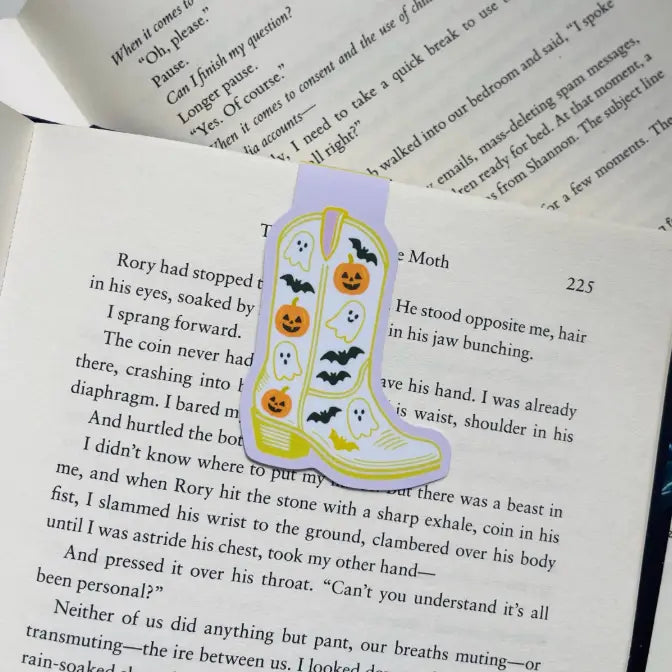 When it comes to
"Oh, please."
Pause.
Can I finish my question?
Longer pause.
"Yes. Of course."
When it comes to consent and the use of
accounts—
I need to take a quick break to use
all right?"
walked into our bedroom and said, "I spoke
emails, mass-deleting spam messages,
ready for bed. At that moment, a
from Shannon. The subject line
for a few moments. The
Moth
225
Rory had stopped
He stood opposite me, hair
in his eyes, soaked by
in his jaw bunching.
I sprang forward.
The coin never had
his hand. I was already
there, crashing into
waist, shoulder in his
diaphragm. I bared
And hurtled the
I didn't know where to put my
but there was a beast in
me, and when Rory hit the stone with a sharp exhale, coin in his
fist, I slammed his wrist to the ground, clambered over his body
until I was astride his chest, took my other hand—
And pressed it over his throat. "Can't you understand it's all
been personal?"
Neither of us did anything but pant, our breaths muting—or
transmuting—the ire between us. I looked
rain-soaked